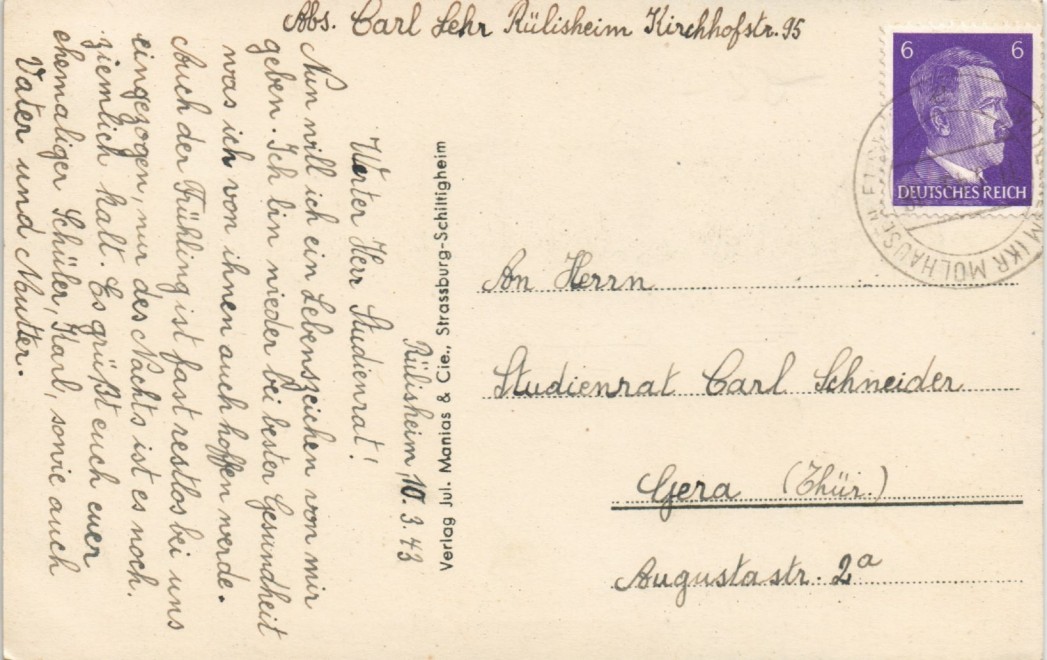 Abs. Carl Lehr Rülisheim Kirchhofstr. 95
Rülisheim, 10. 3. 43
Werter Herr Studienrat!
Nun will ich ein Lebenszeichen von mir
geben. Ich bin wieder bei bester Gesundheit
was ich von ihnen auch hoffen werde.
Auch der Frühling ist fast restlos bei uns
eingezogen, nur des Nachts ist es noch
ziemlich kalt. Es grüßt euch euer
ehemaliger Schüler, Karl, sowie auch
Vater und Mutter.
Verlag Jul. Manias & Cie., Strassburg-Schiltigheim
6 6
DEUTSCHES REICH
(KR MÜLHAUSEN
An Herrn
Studienrat Carl Schneider
Gera (Thür.)
Augustastr. 2a